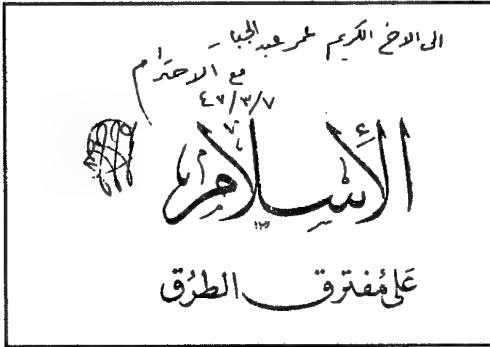 الى الاخ الكريم عمر عبد الجبار
مع الاحترام
٤٧/٣/٧
الإسلام
على مُفترق الطرُق